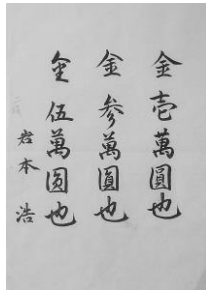 金壱萬圓也
金参萬圓也
金伍萬圆也
岩本浩